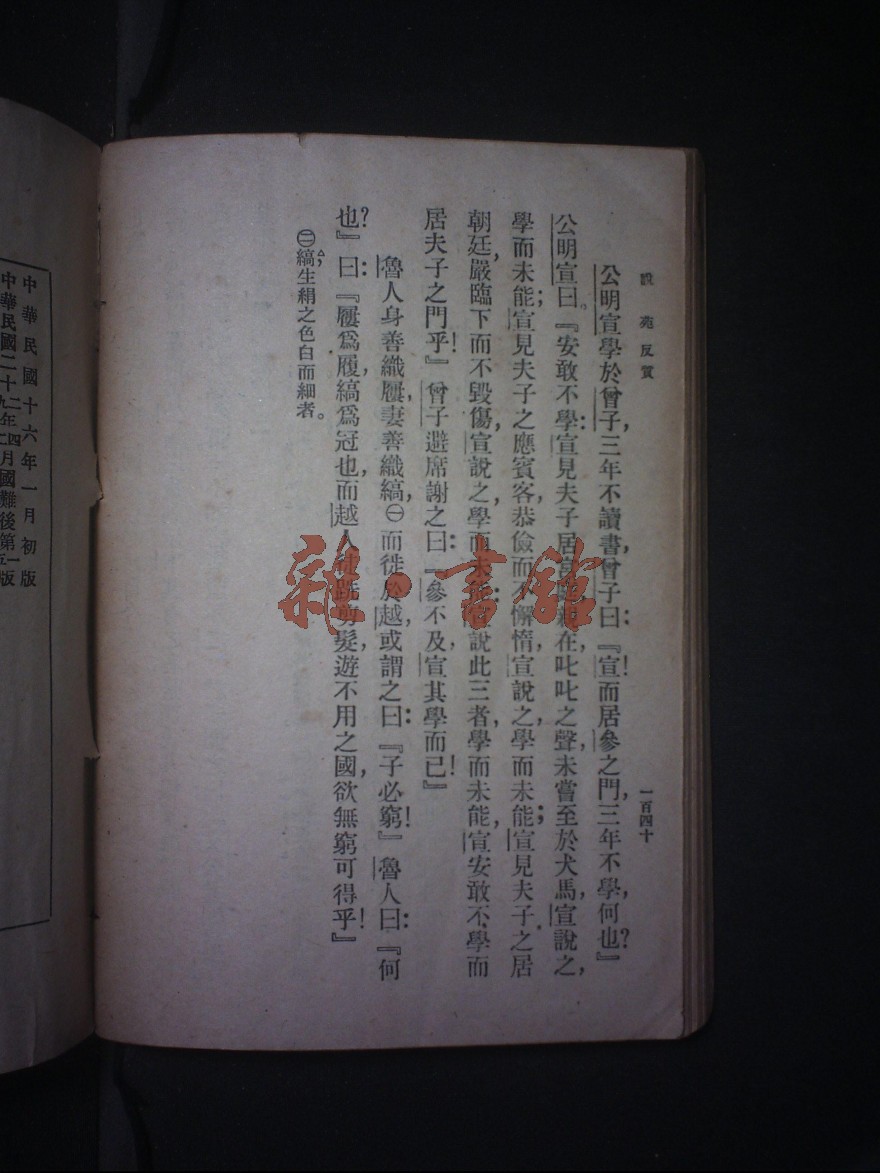 說苑反質
一百四十
公明宣學於曾子,三年不讀書,曾子曰:『宣!而居參之門,三年不學,何也?』
公明宣曰。『安敢不學:宣見夫子居宮庭,親在,叱叱之聲,未嘗至於犬馬,宣說之,
學而未能;宣見夫子之應賓客,恭儉而不懈惰,宣說之,學而未能;宣見夫子之居
朝廷,嚴臨下而不毀傷,宣說之,學而未能:宣說此三者,學而未能,宣安敢不學而
居夫子之門乎!』曾子避席謝之曰:『參不及宣,其學而已!』
魯人身善織屨,妻善織縞,㊀而徙於越,或謂之曰:『子必窮!』魯人曰:『何
也?』曰:『屨爲履,縞爲冠也,而越人徒跣剪髮,遊不用之國,欲無窮可得乎!』
㊀縞,生絹之色白而細者。
中華民國十六年一月初版
中華民國二十二年四月國難後第一版
雜·書館